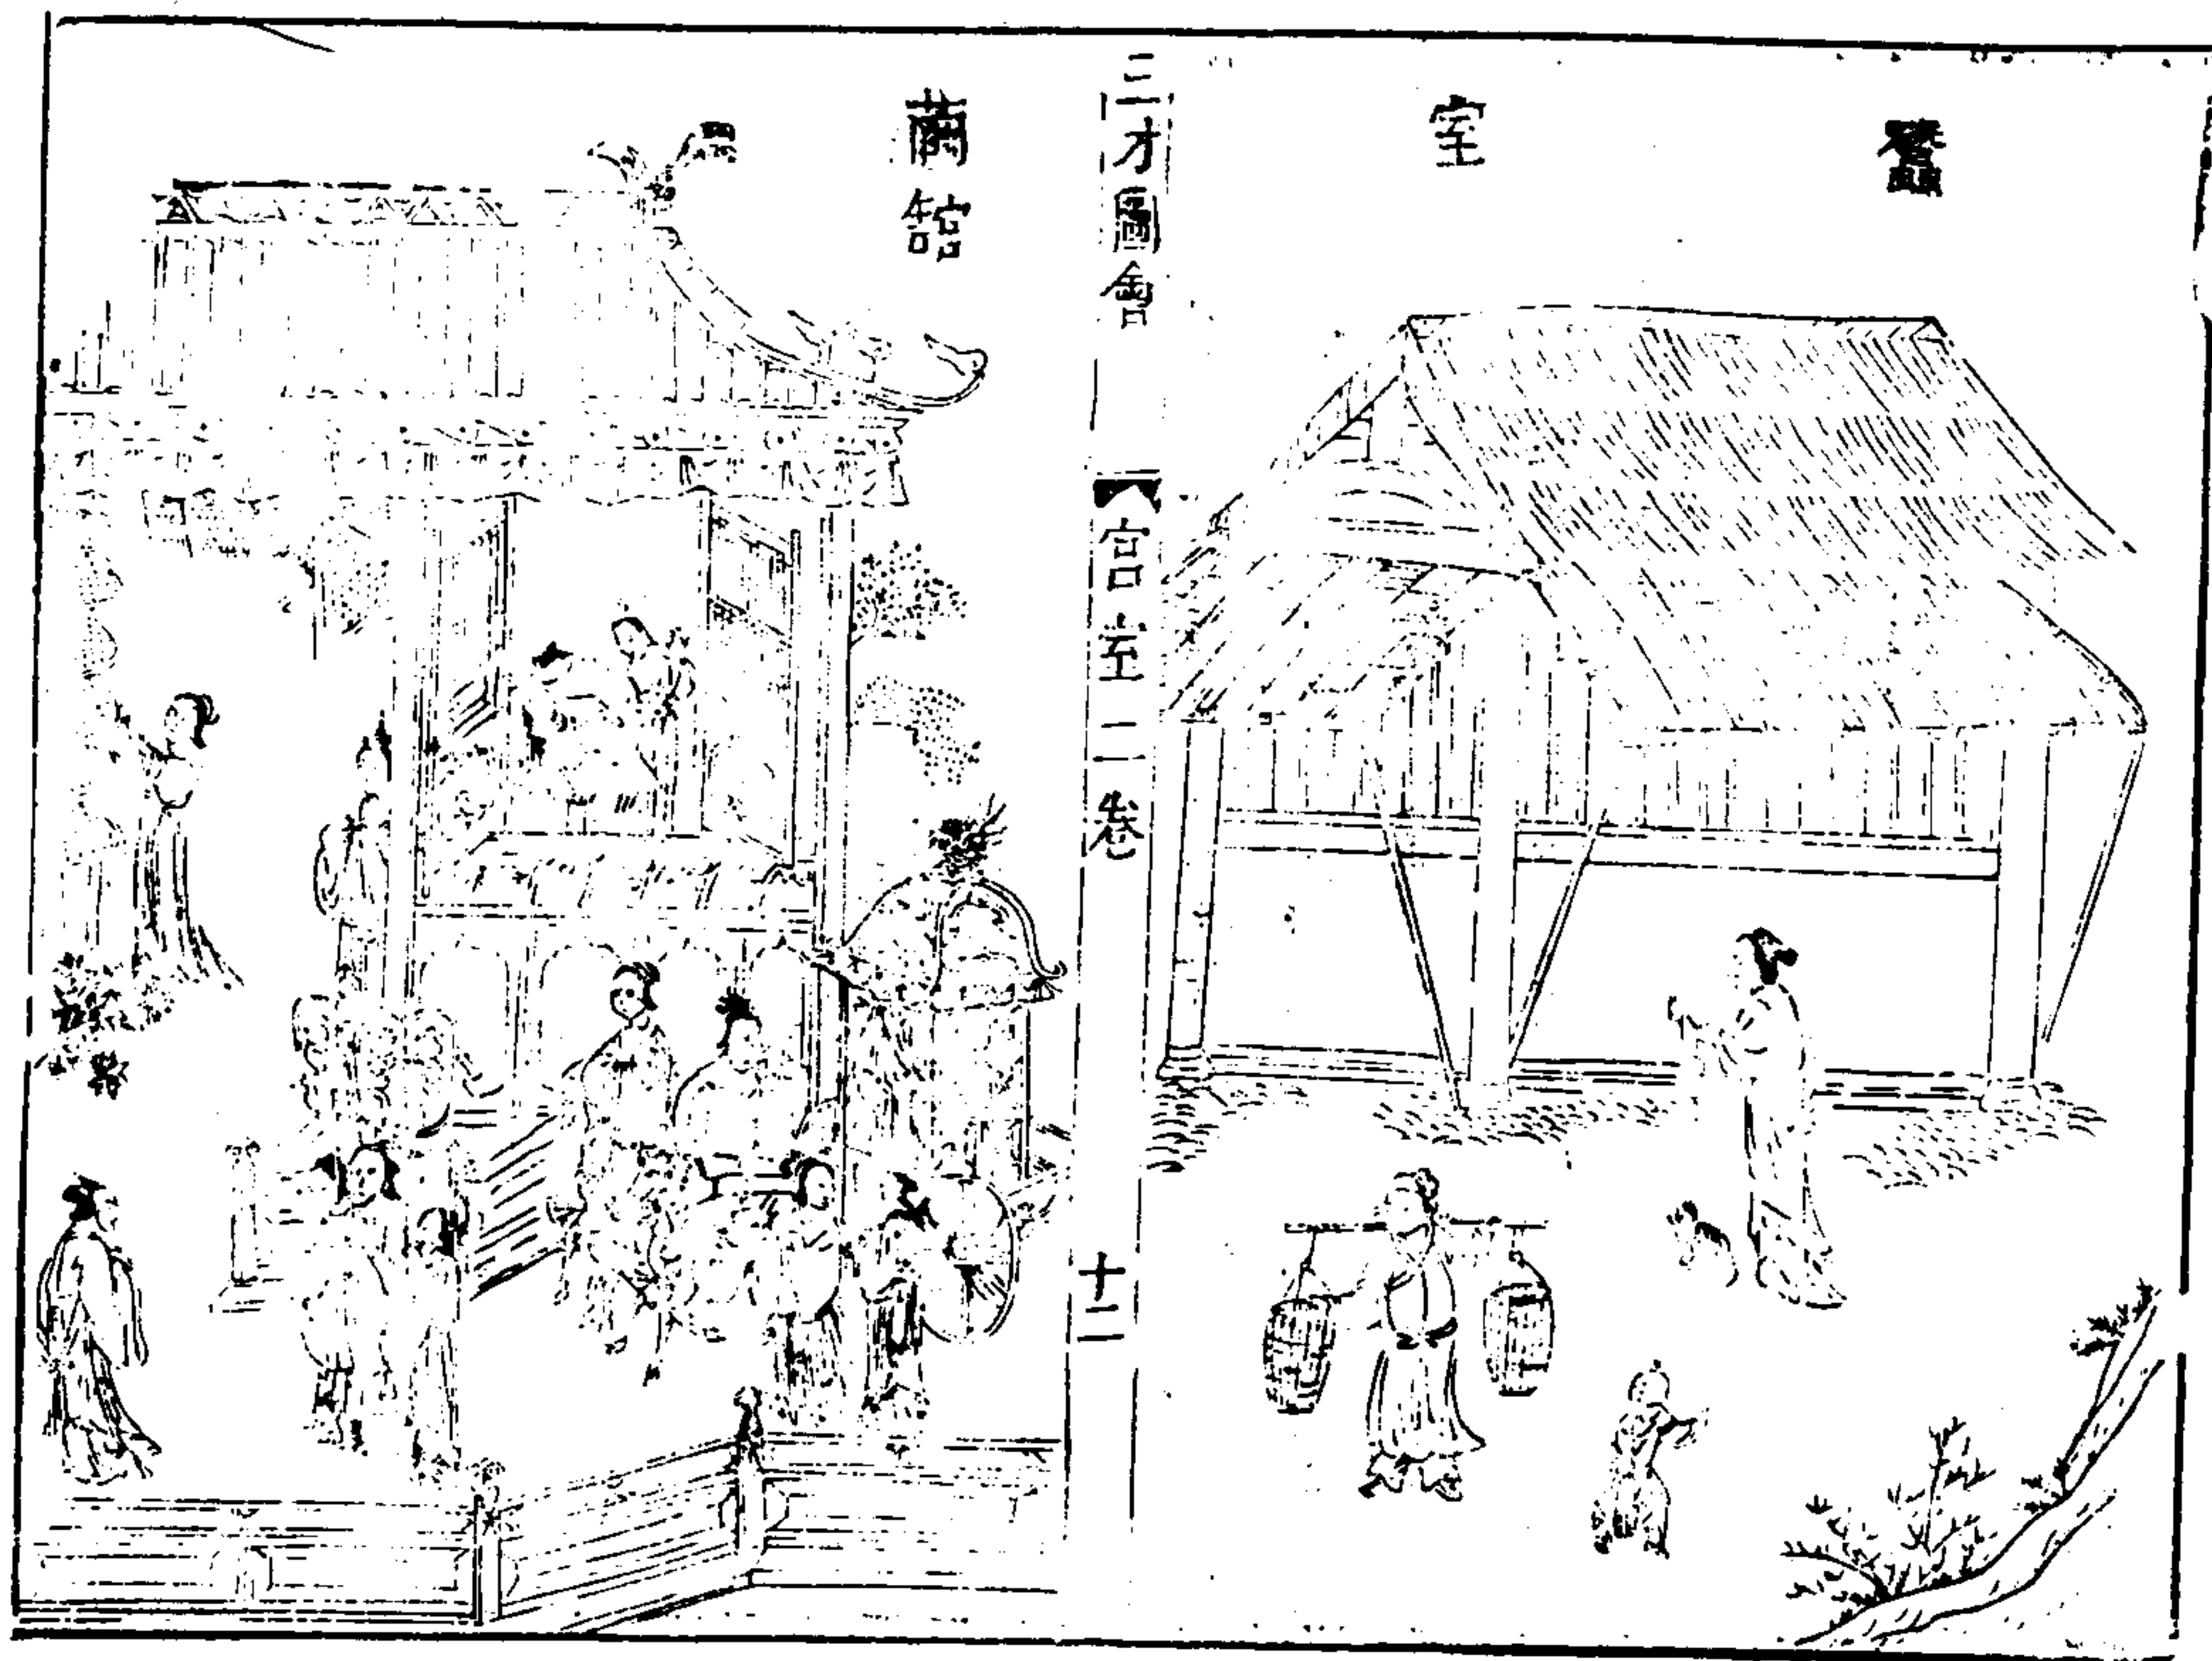 蠶室
三才圖會
宮室二卷
十二
繭舘